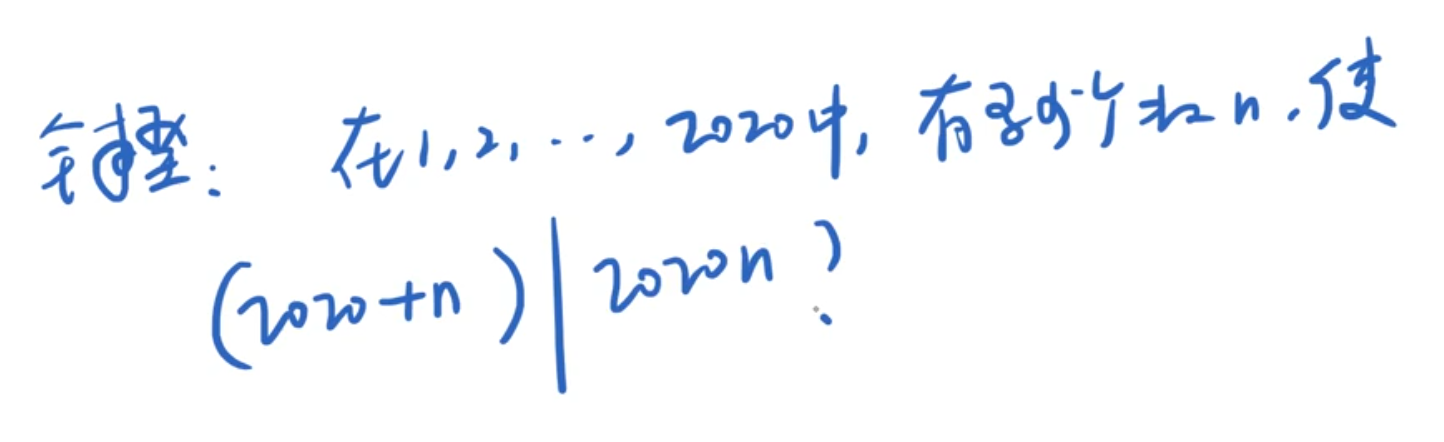 例题: 在1,2,…,2020中,有多少个数n,使
(2020+n)|2020n?